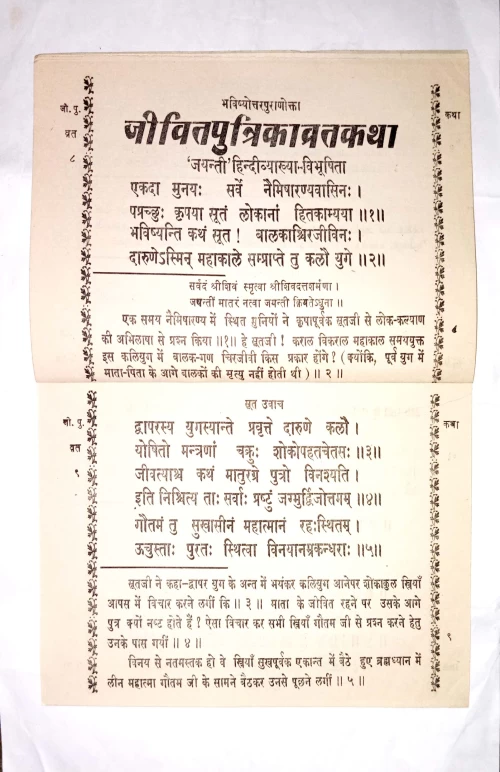 भविष्योत्तरपुराणोक्ता
जी. पु.
व्रत
८
कथा
जीवितपुत्रिकाव्रतकथा
'जयन्ती' हिन्दीव्याख्या-विभूषिता
एकदा मुनयः सर्वे नैमिषारण्यवासिनः।
पप्रच्छुः कृपया सूतं लोकानां हितकाम्यया॥१॥
भविष्यन्ति कथं सूत! बालकाश्चिरजीविनः।
दारुणेऽस्मिन् महाकाले सम्प्राप्ते तु कलौ युगे॥२॥
सर्वदं श्रीशिवं स्मृत्वा श्रीशिवदत्तशर्मणा।
जयन्तीं मातरं नत्वा जयन्ती क्रियतेऽधुना॥
एक समय नैमिषारण्य में स्थित मुनियों ने कृपापूर्वक सूतजी से लोक-कल्याण
की अभिलाषा से प्रश्न किया॥१॥ हे सूतजी! कराल विकराल महाकाल समययुक्त
इस कलियुग में बालक-गण चिरजीवी किस प्रकार होंगे? (क्योंकि, पूर्व युग में
माता-पिता के आगे बालकों की मृत्यु नहीं होती थी)॥२॥
८
सूत उवाच
जी. पु.
व्रत
९
कथा
द्वापरस्य युगस्यान्ते प्रवृत्ते दारुणे कलौ।
योषितो मन्त्रणां चक्रुः शोकोपहतचेतसः॥३॥
जीवत्याश्च कथं मातुरग्रे पुत्रो विनश्यति।
इति निश्चित्य ताः सर्वाः प्रष्टुं जग्मुर्द्विजोत्तमम्॥४॥
गौतमं तु सुखासीनं महात्मानं रहःस्थितम्।
ऊचुस्ताः पुरतः स्थित्वा विनयानम्रकन्धराः॥५॥
सूतजी ने कहा-द्वापर युग के अन्त में भयंकर कलियुग आनेपर शोकाकुल स्त्रियाँ
आपस में विचार करने लगीं कि॥३॥ माता के जीवित रहने पर उसके आगे
पुत्र क्यों नष्ट होते हैं? ऐसा विचार कर सभी स्त्रियाँ गौतम जी से प्रश्न करने हेतु
उनके पास गयीं॥४॥
९
विनय से नतमस्तक हो वे स्त्रियाँ सुखपूर्वक एकान्त में बैठे हुए ब्रह्मध्यान में
लीन महात्मा गौतम जी के सामने बैठकर उनसे पूछने लगीं॥५॥